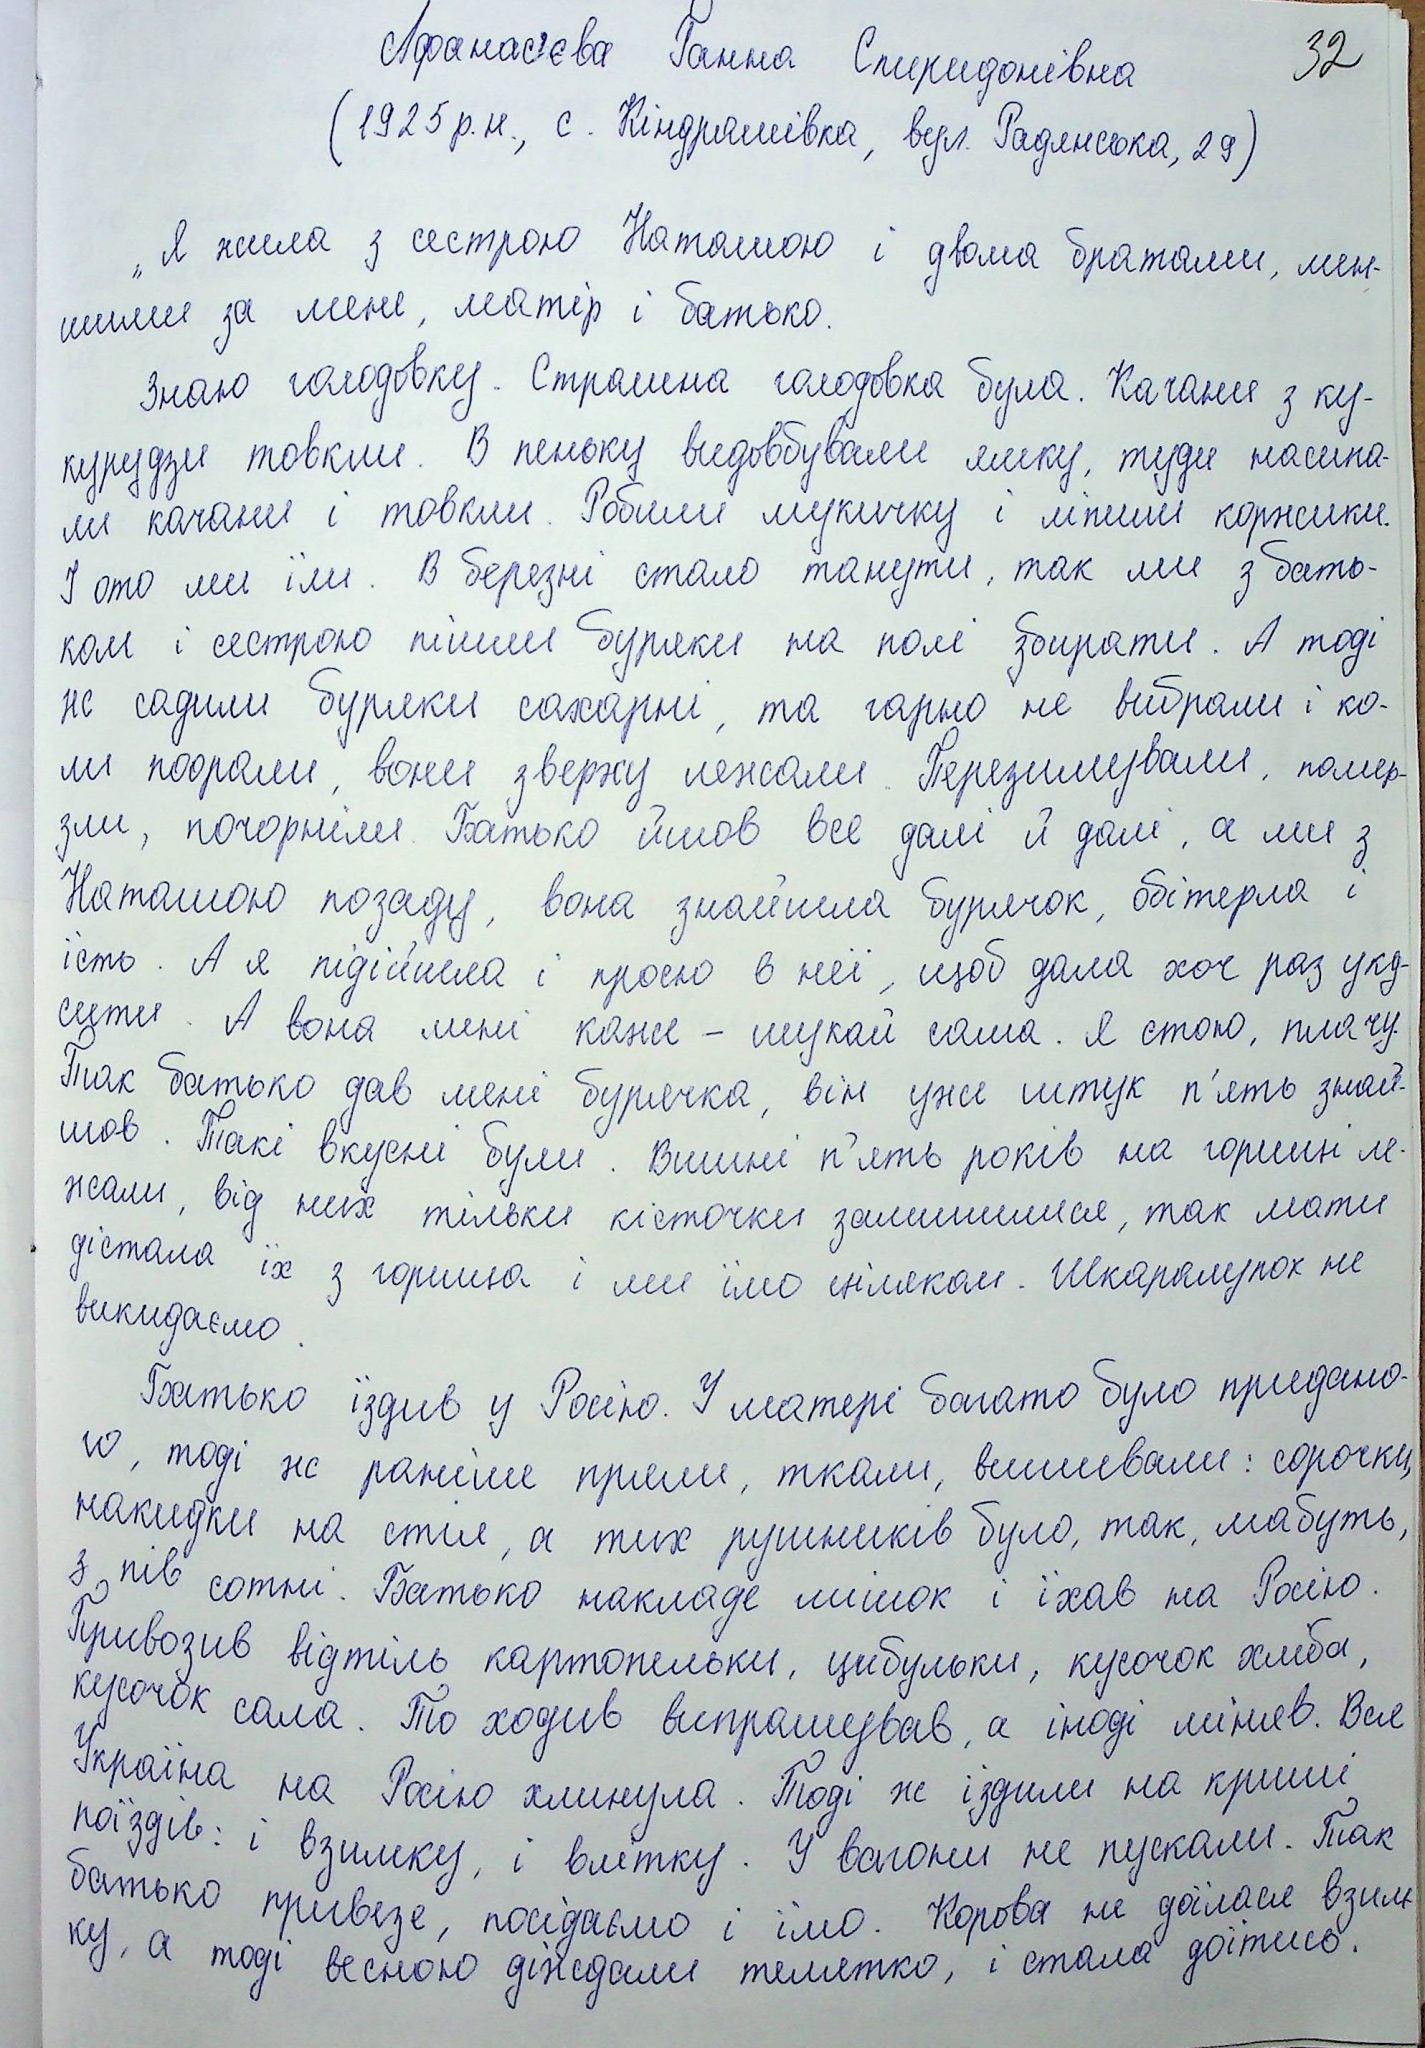 32
Афанас'єва Ганна Спиридонівна
(1925 р.н., с. Кіндрашівка, вул. Радянська, 29)
„Я жила з сестрою Наташою і двома братами, мен-
шими за мене, матір і батько.
Знаю голодовку. Страшна голодовка була. Качани з ку-
курудзи товкли. В пеньку видовбували ямку, туди насипа-
ли качани і товкли. Робили мукичку і ліпили коржики.
І ото ми їли. В березні стало танути, так ми з бать-
ком і сестрою пішли буряки на полі збирати. А тоді
ж садили буряки сахарні, та гарно не вибрали і ко-
ли поорали, вони зверху лежали. Перезимували, помер-
зли, почорніли. Батько йшов все далі й далі, а ми з
Наташою позаду, вона знайшла бурячок, обітерла і
їсть. А я підійшла і прошу в неї, щоб дала хоч раз уку-
сити. А вона мені каже – шукай сама. Я стою, плачу.
Так батько дав мені бурячка, він уже штук п'ять знай-
шов. Такі вкусні були. Вишні п'ять років на горищі ле-
жали, від них тільки кісточки залишилися, так мати
дістала їх з горища і ми їмо ціляком. Шкаралупок не
викидаємо.
Батько їздив у Росію. У матері багато було придано-
го, тоді ж раніше пряли, ткали, вишивали: сорочки,
накидки на стіл, а тих рушників було, так, мабуть,
з пів сотні. Батько накладе мішок і їхав на Росію.
Привозив відтіль картопельки, цибульки, кусочок хліба,
кусочок сала. То ходив випрашував, а іноді міняв. Вся
Україна на Росію хлинула. Тоді ж їздили на криші
поїздів: і взимку, і влітку. У вагони не пускали. Так
батько привезе, посідаємо і їмо. Корова не доїлася взим-
ку, а тоді весною діждали телятко, і стала доїтись.